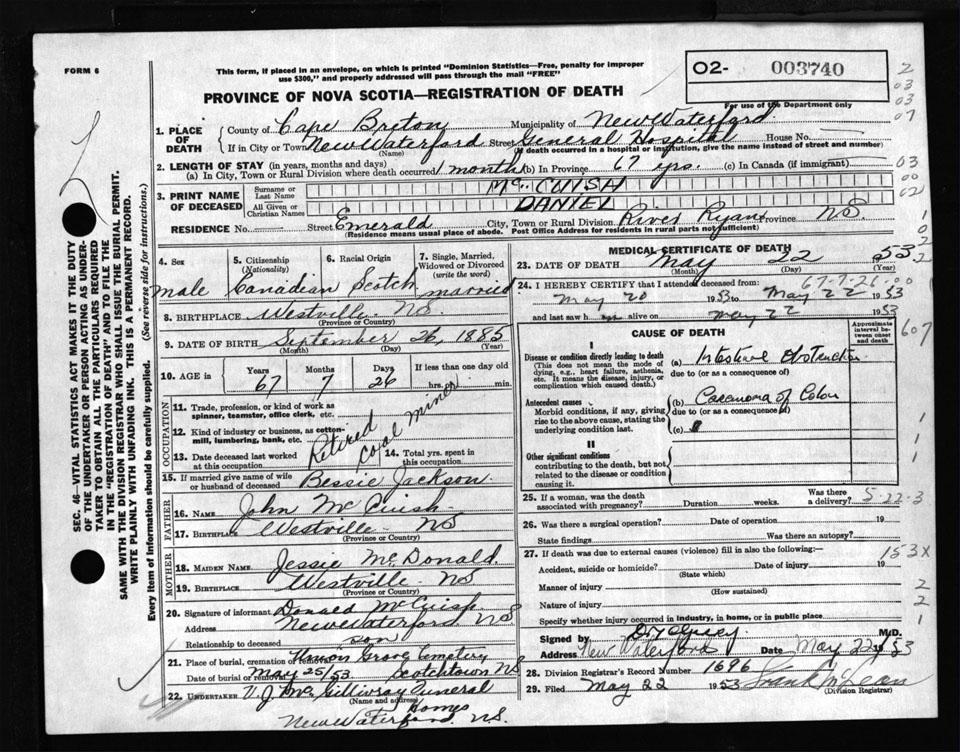 FORM 6
This form, if placed in an envelope, on which is printed "Dominion Statistics—Free, penalty for improper
use $300," and properly addressed will pass through the mail "FREE"
PROVINCE OF NOVA SCOTIA—REGISTRATION OF DEATH
O2- 003740
For use of the Department only
2
03
03
07
1. PLACE OF DEATH
County of Cape Breton Municipality of New Waterford
If in City or Town New Waterford Street General Hospital House No.
(Name) (If death occurred in a hospital or institution, give the name instead of street and number)
2. LENGTH OF STAY (in years, months and days)
(a) In City, Town or Rural Division where death occurred 1 month (b) In Province 67 yrs. (c) In Canada (if immigrant)
03
00
02
3. PRINT NAME OF DECEASED
Surname or Last Name Mc CUISH
All Given or Christian Names DANIEL
RESIDENCE No. Street Emerald City, Town or Rural Division River Ryan Province NS
(Residence means usual place of abode. Post Office Address for residents in rural parts not sufficient)
4. Sex male
5. Citizenship (Nationality) Canadian
6. Racial Origin Scotch
7. Single, Married, Widowed or Divorced (write the word) married
8. BIRTHPLACE Westville NS.
(Province or Country)
9. DATE OF BIRTH September 26, 1885
(Month) (Day) (Year)
10. AGE in Years 67 Months 7 Days 26 If less than one day hrs. or min.
OCCUPATION
11. Trade, profession, or kind of work as spinner, teamster, office clerk, etc.
12. Kind of industry or business, as cotton-mill, lumbering, bank, etc.
Retired coal miner
13. Date deceased last worked at this occupation
14. Total yrs. spent in this occupation
15. If married give name of wife or husband of deceased Bessie Jackson
FATHER
16. NAME John Mc Cuish
17. BIRTHPLACE Westville NS
(Province or Country)
MOTHER
18. MAIDEN NAME Jessie McDonald.
19. BIRTHPLACE Westville NS
(Province or Country)
20. Signature of informant Donald Mc Cuish
Address New Waterford NS
Relationship to deceased son
21. Place of burial, cremation or removal Union Grove Cemetery
Date of burial or removal May 25/53. Scotchtown NS
22. UNDERTAKER V.J. Mc Gillivray Funeral Homes
(Name and address)
New Waterford. NS.
MEDICAL CERTIFICATE OF DEATH
23. DATE OF DEATH May 22 1953
(Month) (Day) (Year)
24. I HEREBY CERTIFY that I attended deceased from:
67-7-26-00
May 20 1953 to May 22 1953
and last saw h im alive on May 22 1953
CAUSE OF DEATH
Approximate interval between onset and death
607
I
Disease or condition directly leading to death
(This does not mean the mode of dying, e.g., heart failure, asthenia, etc. It means the disease, injury, or complication which caused death.)
(a) Intestinal Obstruction
due to (or as a consequence of)
Antecedent causes
Morbid conditions, if any, giving rise to the above cause, stating the underlying condition last.
(b) Carcinoma of Colon
due to (or as a consequence of)
(c)
II
Other significant conditions
contributing to the death, but not related to the disease or condition causing it.
25. If a woman, was the death associated with pregnancy? Duration weeks. Was there a delivery?
5-22-3
26. Was there a surgical operation? Date of operation 19
State findings Was there an autopsy?
27. If death was due to external causes (violence) fill in also the following:—
153X
Accident, suicide or homicide? Date of injury 19
(State which)
Manner of injury
(How sustained)
2
Nature of injury
2
Specify whether injury occurred in industry, in home, or in public place
Signed by M.D.
Address New Waterford Date May 22 1953
28. Division Registrar's Record Number 1696
29. Filed May 22 1953 Frank McLean
(Division Registrar)
SEC. 46—VITAL STATISTICS ACT MAKES IT THE DUTY
OF THE UNDERTAKER OR PERSON ACTING AS UNDER-
TAKER TO OBTAIN ALL THE PARTICULARS REQUIRED
IN THE "REGISTRATION OF DEATH" AND TO FILE THE
SAME WITH THE DIVISION REGISTRAR WHO SHALL ISSUE THE BURIAL PERMIT.
WRITE PLAINLY WITH UNFADING INK. THIS IS A PERMANENT RECORD.
Every item of Information should be carefully supplied. (See reverse side for instructions.)